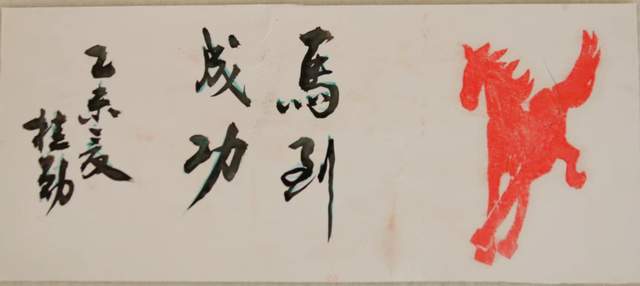 馬到
成功
乙未夏
桂勤